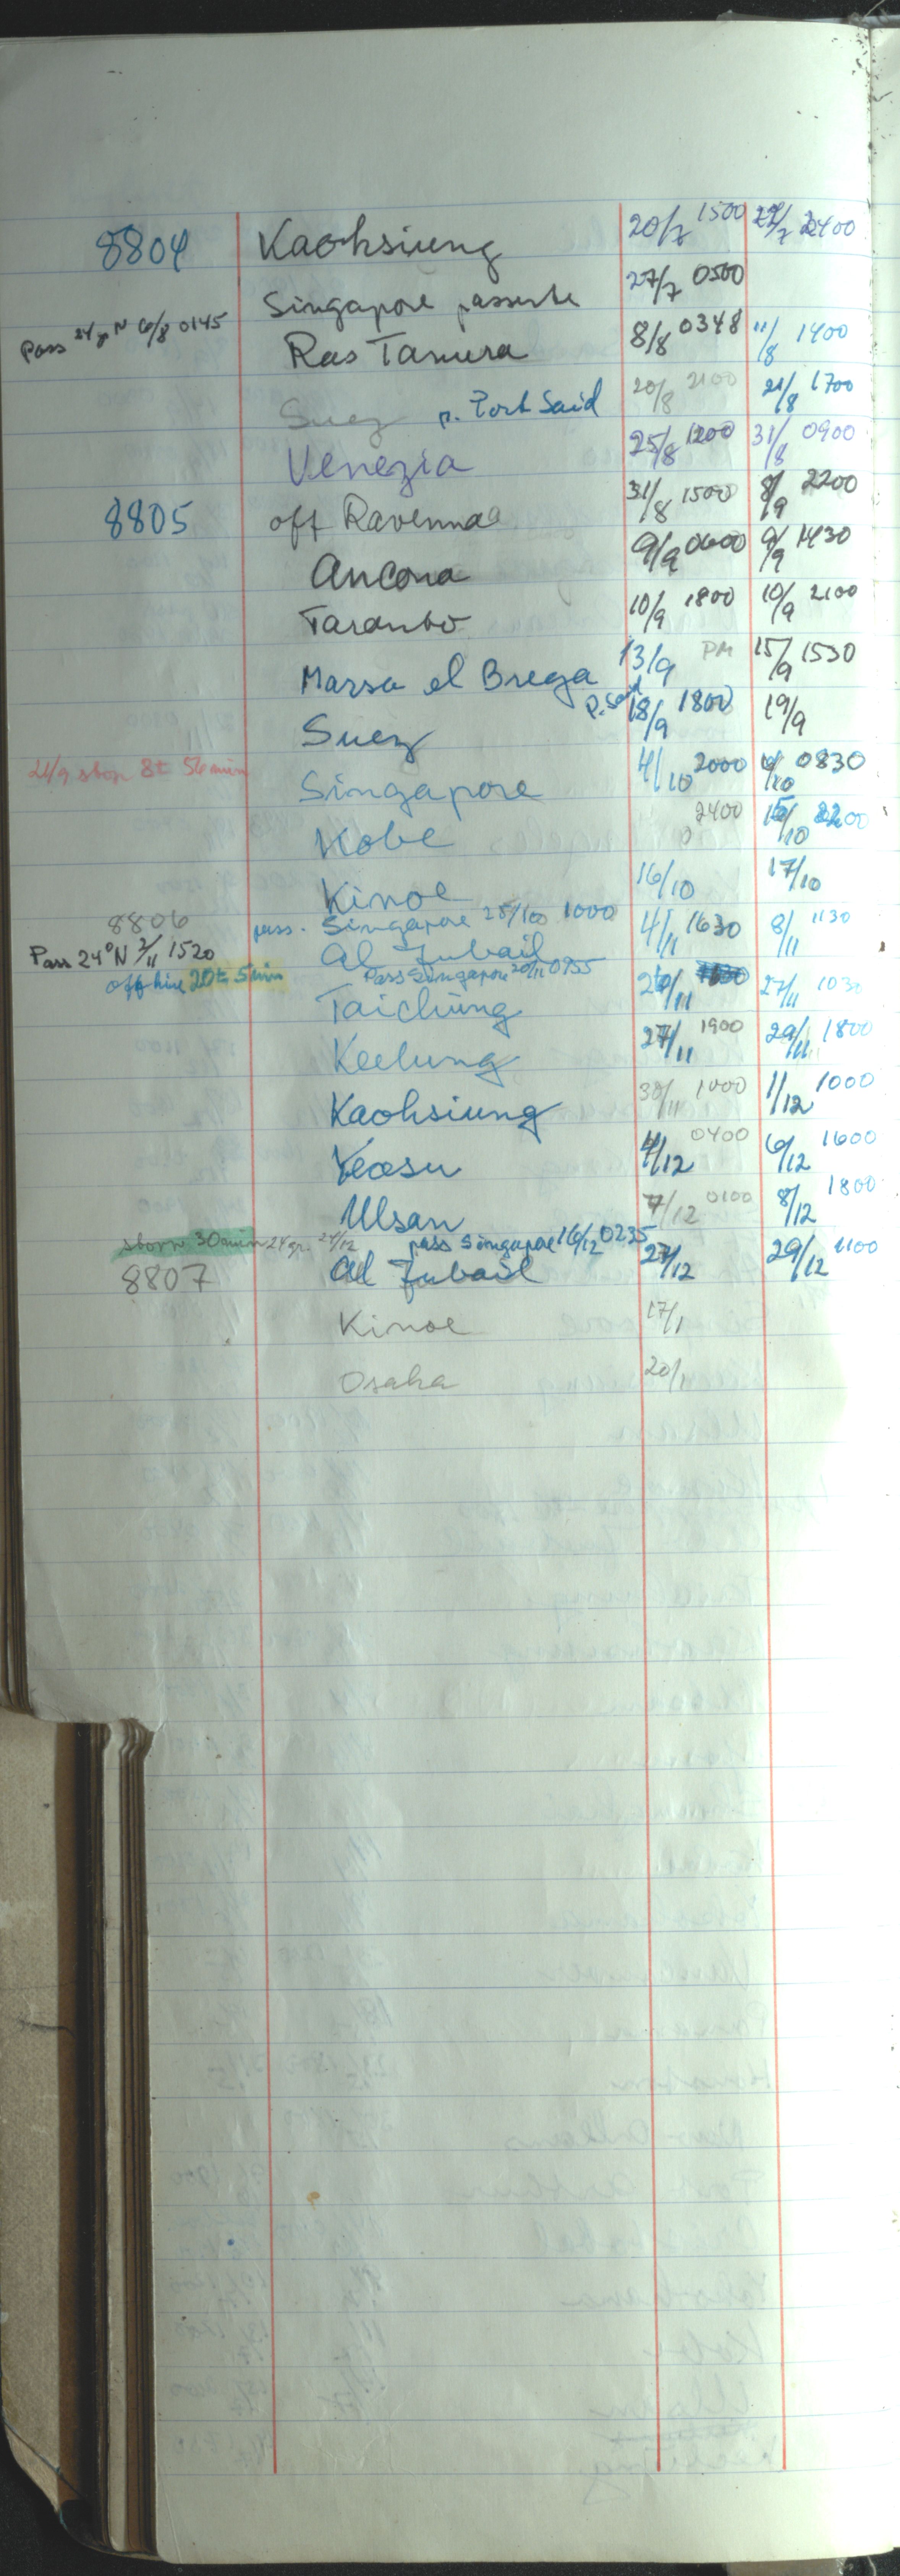 8804 Kaohsiung 20/7 1500 22/7 2400
Singapore passerte 27/7 0500
Pass 24 gr N 6/8 0145 Ras Tanura 8/8 0348 11/8 1400
Suez p. Port Said 20/8 2100 21/8 1700
Venezia 25/8 1200 31/8 0900
8805 off Ravenna 31/8 1500 8/9 2200
Ancona 9/9 0600 9/9 1430
Taranto 10/9 1800 10/9 2100
Marsa el Brega 13/9 PM 15/9 1530
Suez P. Said 18/9 1800 19/9
21/9 stop 8t 56 min
Singapore 4/10 2000 6/10 0830
Kobe 2400 15/10 2200
Kinoe 16/10 17/10
8806 pass. Singapore 25/10 1000
Pass 24°N 2/11 1520 Al Jubail 4/11 1630 8/11 1130
off hire 20t 5min Pass Singapore 20/11 0955
Taichung 26/11 27/11 1030
Keelung 27/11 1900 29/11 1800
Kaohsiung 30/11 1000 1/12 1000
Yeosu 4/12 0400 6/12 1600
Ulsan 7/12 0100 8/12 1800
30min 24gr. 24/12 pass Singapore 16/12 0235
8807 Al Jubail 27/12 29/12 1100
Kinoe 17/1
Osaka 20/1